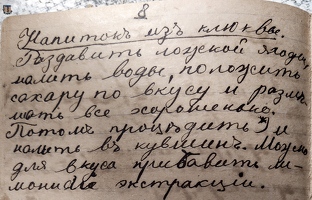 8
Напитокъ изъ клюквы.
Раздавить ложкой ягоды,
налить воды, положить
сахару по вкусу и размѣ-
шать все хорошенько.
Потомъ процѣдить *) и
налить въ кувшинъ. Можно
для вкуса прибавить ли-
монной экстракціи.